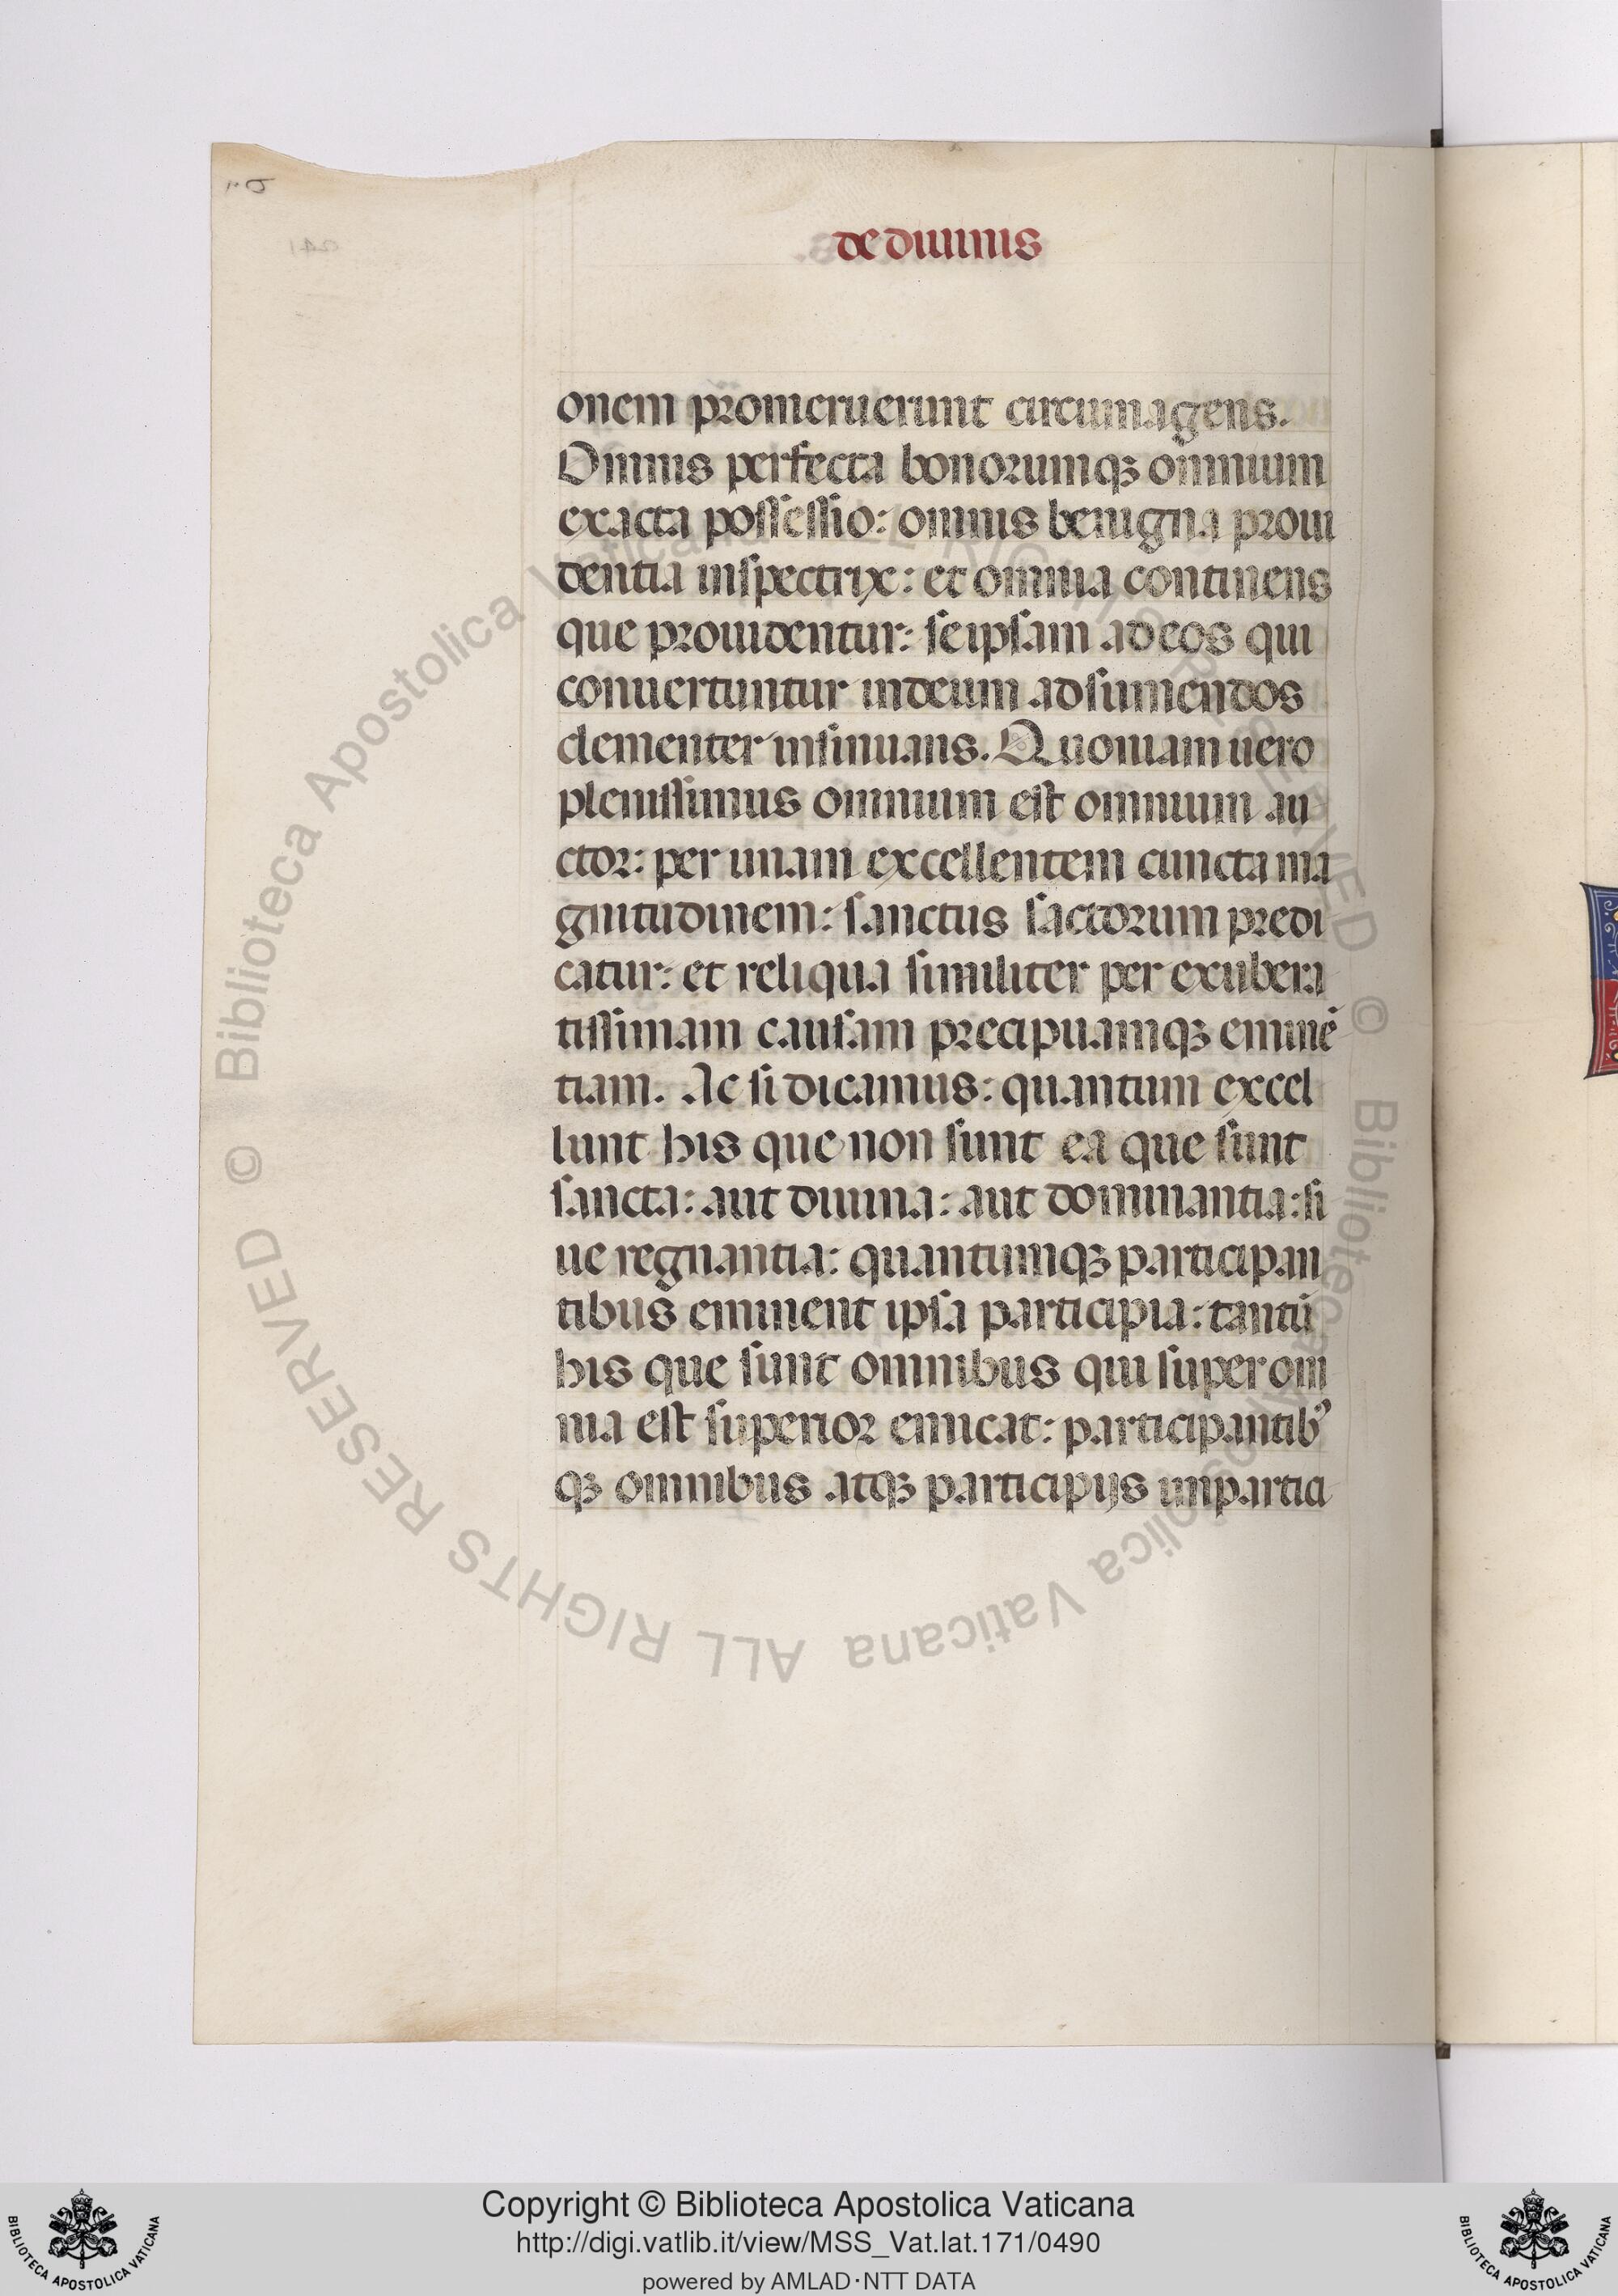 de diuinis
onem promeruerunt circumagens.
Omnis perfecta bonorumqꝫ omnium
exacta possessio: omnis benigna proui
dentia inspectrix: et omnia continens
que prouidentur: seipsam ad eos qui
conuertuntur indeum ad sumendos
clementer insinuans. Quoniam uero
plenissimus omnium est omnium au
ctor: per unam excellentem cuncta ma
gnitudinem: sanctus sactorum predi
catur: et reliqua similiter per exubera
tissimam causam precipuamqꝫ eminē
tiam. Ac si dicamus: quantum excel
lunt his que non sunt ea que sunt
sancta: aut diuina: aut dominantia: si
ue regnantia: quantumqꝫ participan
tibus eminent ipsa participia: tantū
his que sunt omnibus qui super om
nia est superior emicat: participantibꝰ
qꝫ omnibus atqꝫ participijs inpartici
© Biblioteca Apostolica Vaticana ALL RIGHTS RESERVED © Biblioteca Apostolica Vaticana ALL RIGHTS RESERVED
Copyright © Biblioteca Apostolica Vaticana
http://digi.vatlib.it/view/MSS_Vat.lat.171/0490
powered by AMLAD·NTT DATA
BIBLIOTECA APOSTOLICA VATICANA
BIBLIOTECA APOSTOLICA VATICANA